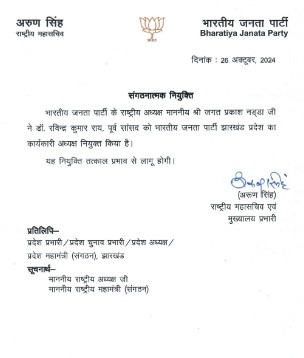 अरुण सिंह
राष्ट्रीय महासचिव
भारतीय जनता पार्टी
Bharatiya Janata Party
दिनांक: 26 अक्टूबर, 2024
संगठनात्मक नियुक्ति
भारतीय जनता पार्टी के राष्ट्रीय अध्यक्ष माननीय श्री जगत प्रकाश नड्डा जी
ने डॉ. रविन्द्र कुमार राय, पूर्व सांसद को भारतीय जनता पार्टी झारखंड प्रदेश का
कार्यकारी अध्यक्ष नियुक्त किया है।
यह नियुक्ति तत्काल प्रभाव से लागू होगी।
(अरुण सिंह)
राष्ट्रीय महासचिव एवं
मुख्यालय प्रभारी
प्रतिलिपि–
प्रदेश प्रभारी/प्रदेश चुनाव प्रभारी/प्रदेश अध्यक्ष/
प्रदेश महामंत्री (संगठन), झारखंड
सूचनार्थ–
माननीय राष्ट्रीय अध्यक्ष जी
माननीय राष्ट्रीय महामंत्री (संगठन)